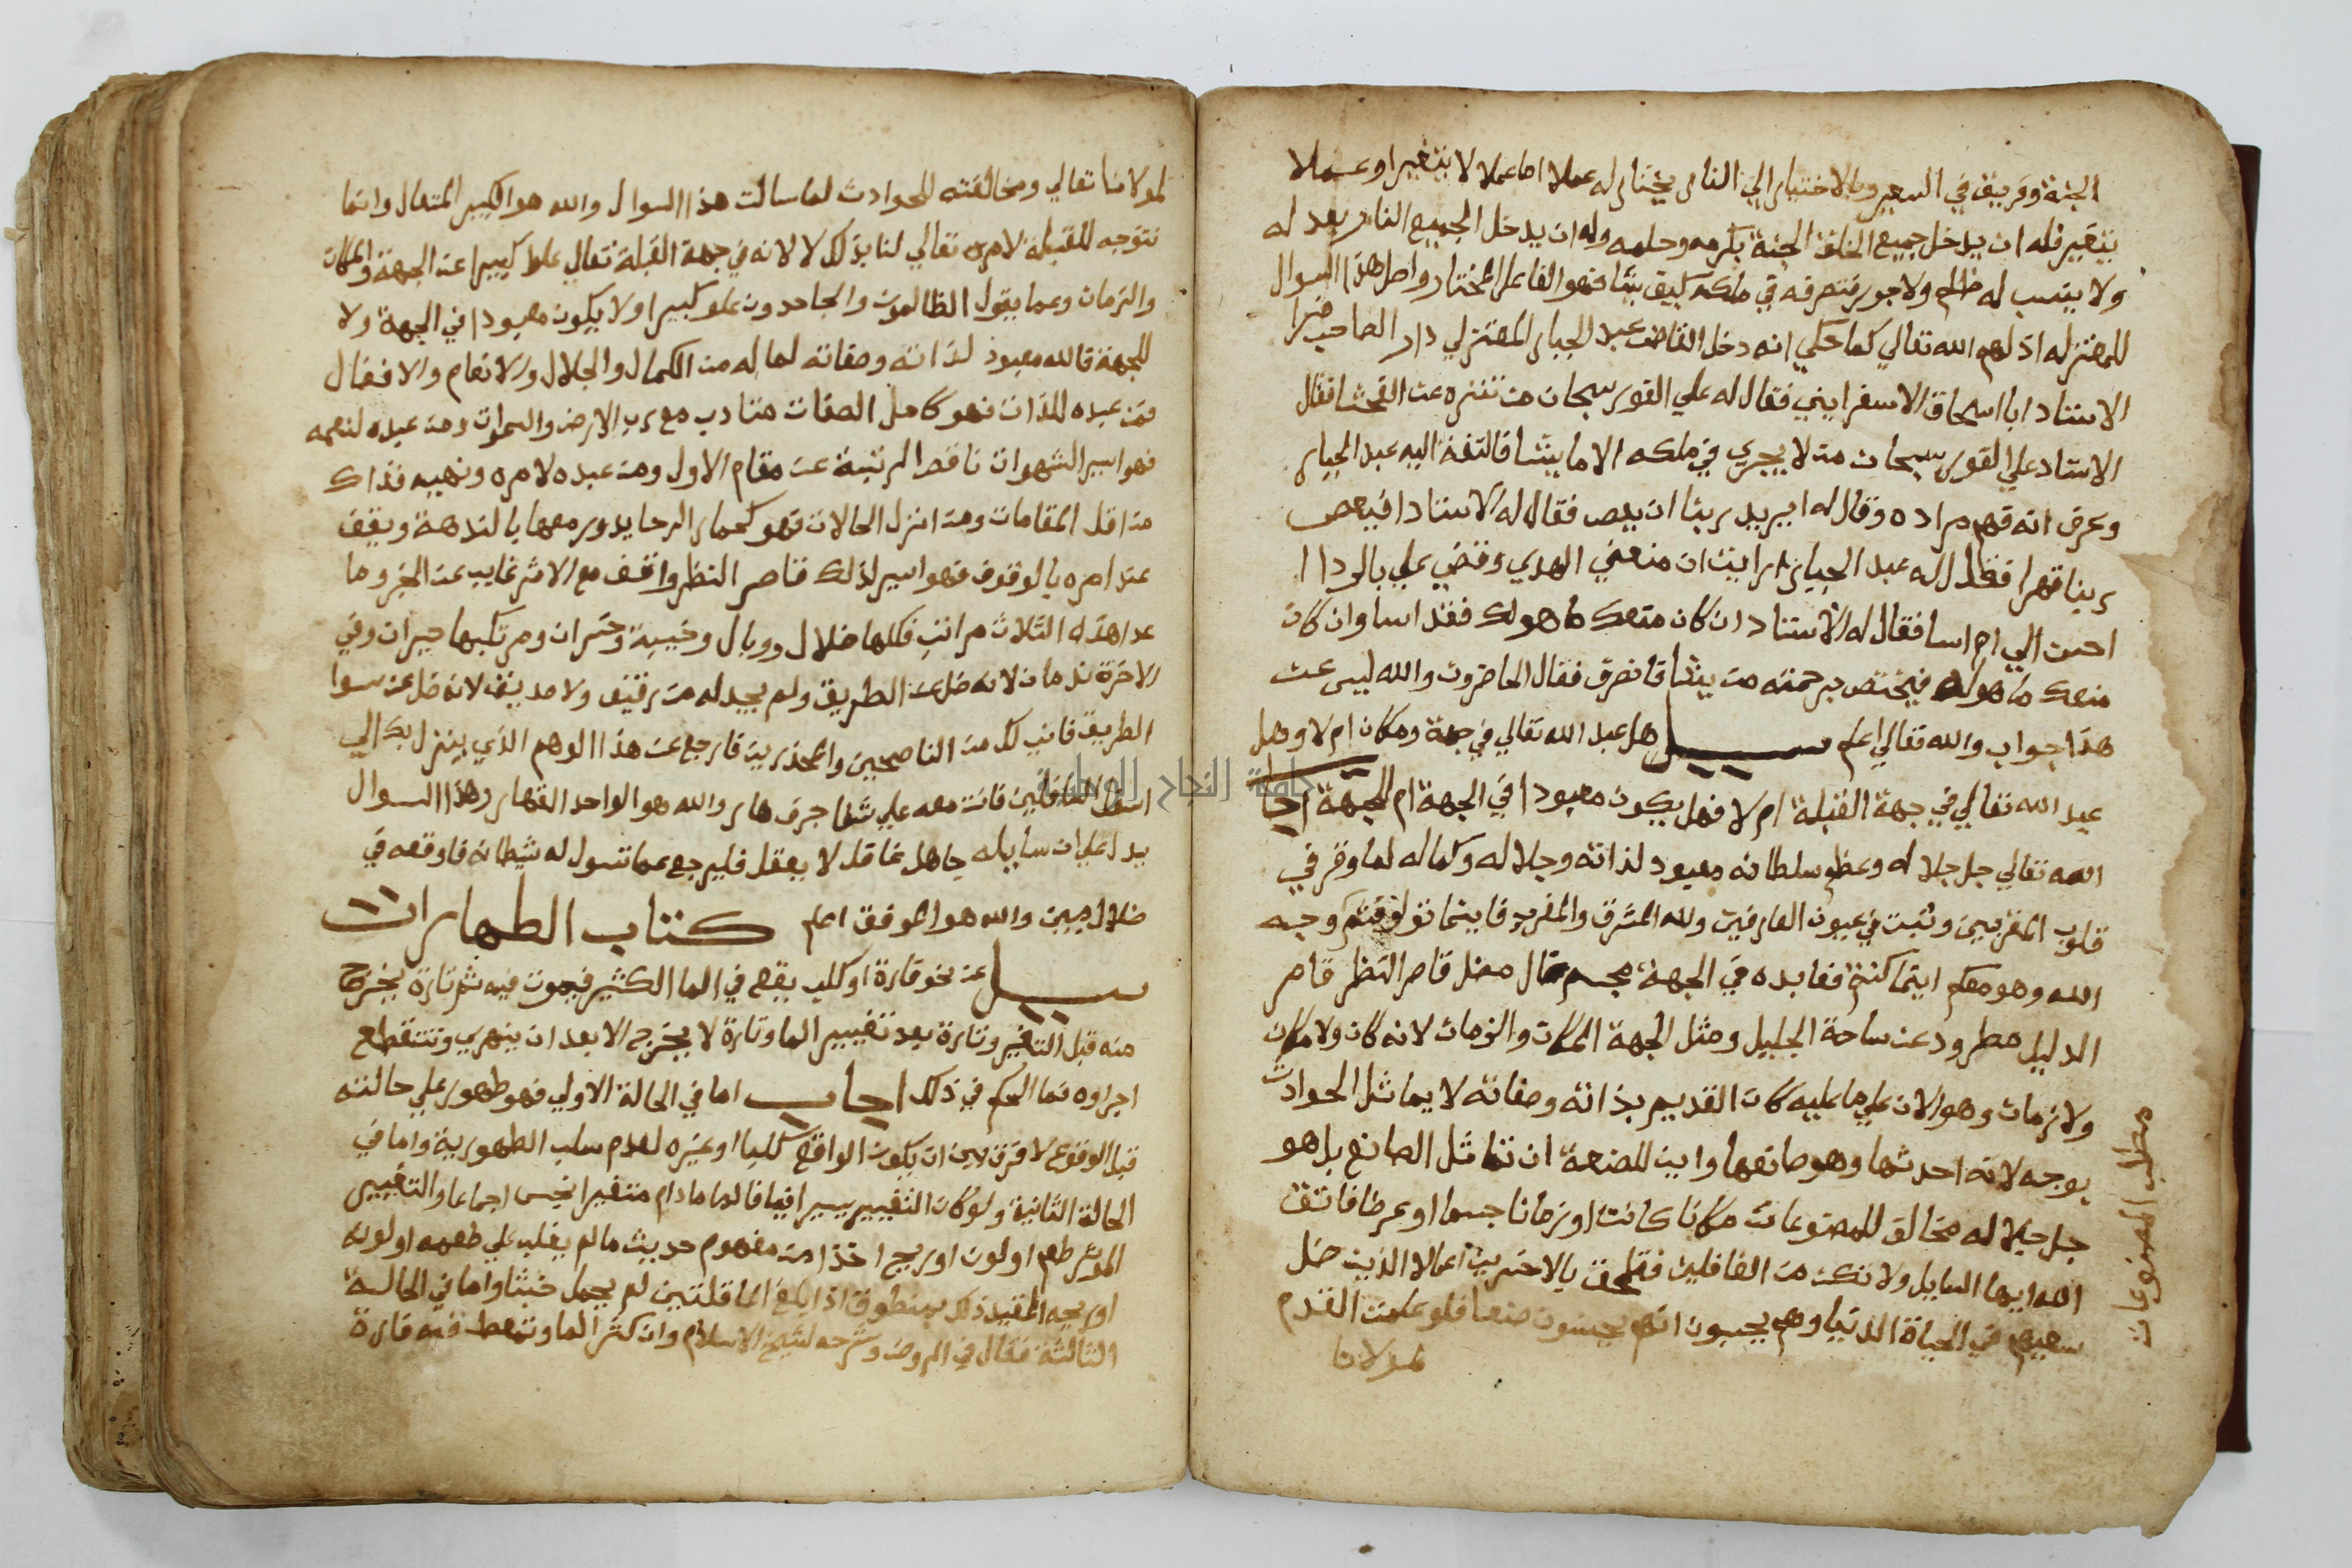 الجنة وفريق في السعير وبالاختيار الي النار يختار له عملا اما عملا لا يتغير او عملا
يتغير فله ان يدخل جميع الخلق الجنة بكرمه وحلمه وله ان يدخل الجميع النار بعدله
ولا ينسب له ظلم ولا جور فتصرفه في ملكه كيف يشا فهو الفاعل المختار واصل هذا السوال
للمعتزله اذلهم الله تعالي كما حكي انه دخل القاضي عبد الجبار المعتزلي دار الصاحب فرا
الاستاد ابا اسحاق الاسفرايني فقال له علي الفور سبحان من تنزه عن الفحشا فقال
الاستاد علي الفور سبحان من لا يجري في ملكه الا ما يشا فالتفة اليه عبد الجبار
وعرف انه فهم مراده وقال له ايريد ربنا ان يعصى فقال له الاستاد افيعصى
ربنا قهرا فقال له عبد الجبار ارايت ان منعني الهدي وقضي علي بالردا ا
احسن الي ام اسا فقال له الاستاد ان كان منعك ما هو لك فقد اسا وان كان
منعك ما هو له فيختص برحمته من يشا فانصرف فقال الحاضرون والله ليس عن
هذا جواب والله تعالي اعلم سيل هل عبد الله تعالي في جهة ومكان ام لا وهل
عبد الله تعالي في جهة القبلة ام لا فهل يكون معبودا في الجهة ام للجهة اجاب
الله تعالي جل جلاله وعظم سلطانه معبود لذاته وجلاله وكماله لما وقر في
قلوب المقربين وثبت في عيون العارفين ولله المشرق والمغرب فاينما تولو فثم وجه
الله وهو معكم اينما كنتم فعابده في الجهة مجسم ضال مضل قاصر النظر قاصر
الدليل مطرود عن ساحة الجليل ومثل الجهة المكان والزمان لانه كان ولا مكان
ولا زمان وهو الان علي ما عليه كان القديم بذاته وصفاته لا يماثل الحوادث
بوجه لانه احدثها وهو صانعها واين للصنعة ان تماثل الصانع بل هو
جل جلاله مخالف للمصنوعات مكانا كانت او زمانا جسما او عرضا فاتق
الله ايها السايل ولا تكن من الغافلين فتلحق بالاخسرين اعمالا الذين ضل
سعيهم في الحياة الدنيا وهم يحسبون انهم يحسنون صنعا فلو علمت القدم
لمولانا
مطلب المصنوعات
لمولانا تعالي ومخالفته للحوادث لما سالت هذا السوال والله هو الكبير المتعال وانما
نتوجه للقبلة لامره تعالي لنا بذلك لا لانه في جهة القبلة تعالي علوا كبيرا عن الجهة والمكان
والزمان وعما يقول الظالمون والجاحدون علو كبيرا ولا يكون معبودا في الجهة ولا
للجهة فالله معبود لذاته وصفاته لما له من الكمال والجلال والانعام والافضال
فمن عبده للذات فهو كامل الصفات متادب مع رب الارض والسموات ومن عبده لنعمه
فهو اسير الشهوات ناقص المرتبة عن مقام الاول ومن عبده لامره ونهيه فذاك
من اقل المقامات ومن انزل الحالات فهو كحمار الرحا يدور معها بالندهة ويقف
عند امره بالوقوف فهو اسير لذلك قاصر النظر واقف مع الاثر غايب عن الخبر وما
عدا هذه الثلاث مراتب فكلها ضلال ووبال وخيبة وخسران ومرتكبها حيران وفي
الاخرة ندمان لانه ضل عن الطريق ولم يجد له من رفيق ولا صديق لانه ضل عن سوا
الطريق فاني لك من الناصحين والمحذرين فارجع عن هذا الوهم الذي ينزل بك الي
اسفل السافلين فانت معه علي شفا جرف هار والله هو الواحد القهار وهذا السوال
يدل علي ان سايله جاهل غافل لا يعقل فليرجع عما تسول له شيطانه فاوقعه في
ضلال مبين والله هو الموفق اعلم كتاب الطهارات
سيل عن نحو فارة او كلب يقع في الما الكثير فيموت فيه ثم تارة يخرج
منه قبل التغير وتارة بعد تغيير الما وتارة لا يخرج الا بعد ان ينهري وتتقطع
اجزاوه فما الحكم في ذلك اجاب اما في الحالة الاولي فهو طهور علي حالته
قبل الوقوع لا فرق بين ان يكون الواقع كلبا او غيره لعدم سلب الطهورية واما في
الحالة الثانية ولو كان التغيير يسيرا فيها فالما ما دام متغيرا نجس اجماعا والتغيير
المؤثر طعم او لون او ريح اخذا من مفهوم حديث ما لم يغلب علي طعمه او لونه
او ريحه المقيد ذلك بمنطوق اذا بلغ الما قلتين لم يحمل خبثا واما في الحالة
الثالثة فقال في الروض وشرحه لشيخ الاسلام وان كثر الما وتمعط فيه فارة
جامعة النجاح الوطنية